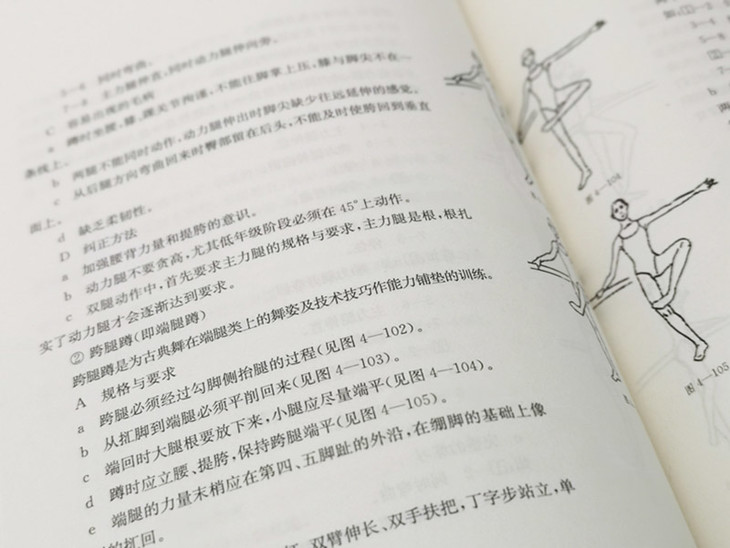 5—6 同时弯曲。
7—8 主力腿伸直,同时动力腿伸向旁。
C 容易出现的毛病
a 蹲时坐腰,膝、踝关节拘谨,不能往脚掌上压,膝与脚尖不在一
条线上。
b 两腿不能同时动作,动力腿伸出时脚尖缺少往远延伸的感觉。
c 从后腿方向弯曲回来时臀部留在后头,不能及时使胯回到垂直
面上。
d 缺乏柔韧性。
D 纠正方法
a 加强腰背力量和提胯的意识。
b 动力腿不要贪高,尤其低年级阶段必须在45°上动作。
c 双腿动作中,首先要求主力腿的规格与要求,主力腿是根,根扎
实了动力腿才会逐渐达到要求。
② 跨腿蹲(即端腿蹲)
跨腿蹲是为古典舞在端腿类上的舞姿及技术技巧作能力铺垫的训练。
A 规格与要求
a 跨腿必须经过勾脚侧抬腿的过程(见图4—102)。
b 从扛脚到端腿必须平削回来(见图4—103)。
c 端回时大腿根要放下来,小腿应尽量端平(见图4—104)。
d 蹲时应立腰、提胯,保持跨腿端平(见图4—105)。
e 端腿的力量末梢应在第四、五脚趾的外沿,在绷脚的基础上像
的扛回。
双臂伸长、双手扶把,丁字步站立,单
图4—104
图4—105
如,(1)—2
3—4
5—6
(2)—
7—
b
两